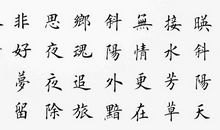 暎斜陽天
接水芳草
無情更在
斜陽外黯
鄉魂追旅
思夜夜除
非好夢留